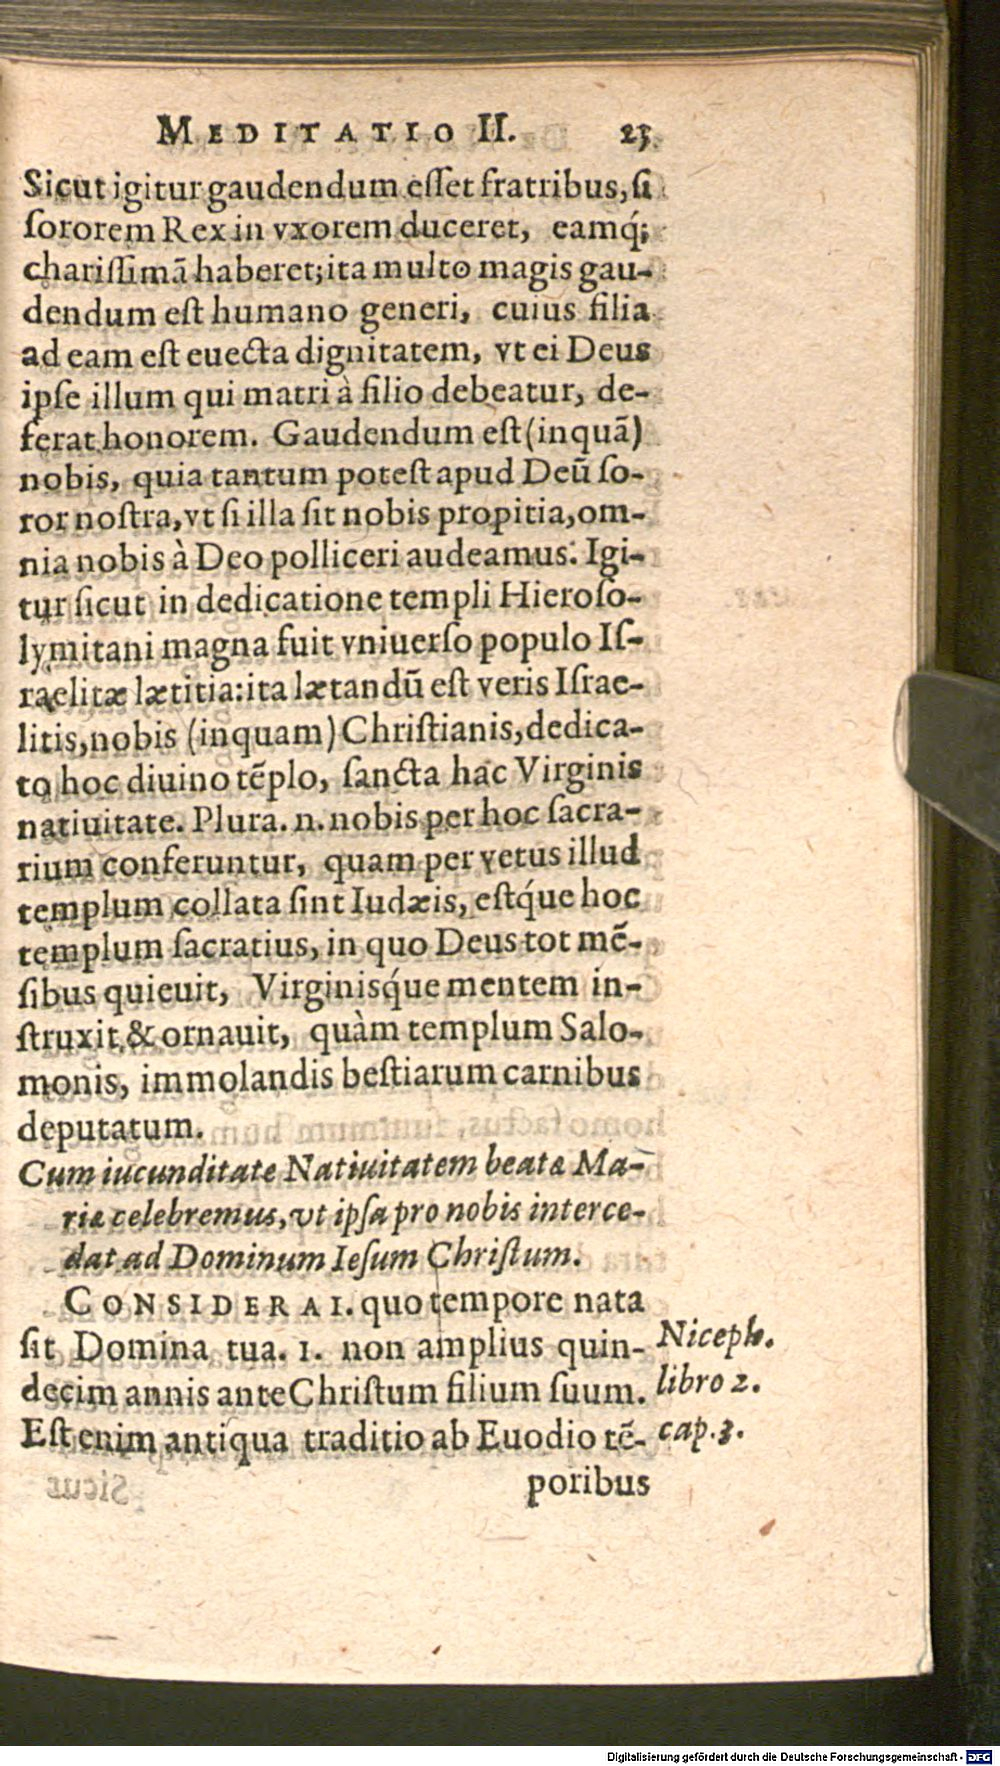 MEDITATIO II. 23
Sicut igitur gaudendum eſſet fratribus, ſi
ſororem Rex in vxorem duceret, eamq́;
chariſſimā haberet; ita multo magis gau-
dendum eſt humano generi, cuius filia
ad eam eſt euecta dignitatem, vt ei Deus
ipſe illum qui matri à filio debeatur, de-
ferat honorem. Gaudendum eſt (inquā)
nobis, quia tantum poteſt apud Deū ſo-
ror noſtra, vt ſi illa ſit nobis propitia, om-
nia nobis à Deo polliceri audeamus. Igi-
tur ſicut in dedicatione templi Hieroſo-
lymitani magna fuit vniuerſo populo Iſ-
raelitæ lætitia: ita lætandū eſt veris Iſrae-
litis, nobis (inquam) Chriſtianis, dedica-
to hoc diuino tēplo, ſancta hac Virginis
natiuitate. Plura .n. nobis per hoc ſacra-
rium conferuntur, quam per vetus illud
templum collata ſint Iudæis, eſtq́ue hoc
templum ſacratius, in quo Deus tot mē-
ſibus quieuit, Virginisq́ue mentem in-
ſtruxit & ornauit, quàm templum Salo-
monis, immolandis beſtiarum carnibus
deputatum.
Cum iucunditate Natiuitatem beatæ Ma-
riæ celebremus, vt ipſa pro nobis interce-
dat ad Dominum Ieſum Chriſtum.
CONSIDERA I. quo tempore nata
ſit Domina tua. 1. non amplius quin-
decim annis ante Chriſtum filium ſuum.
Eſt enim antiqua traditio ab Euodio tē-
poribus
Niceph.
libro 2.
cap. 3.
Digitalisierung gefördert durch die Deutsche Forschungsgemeinschaft - DFG